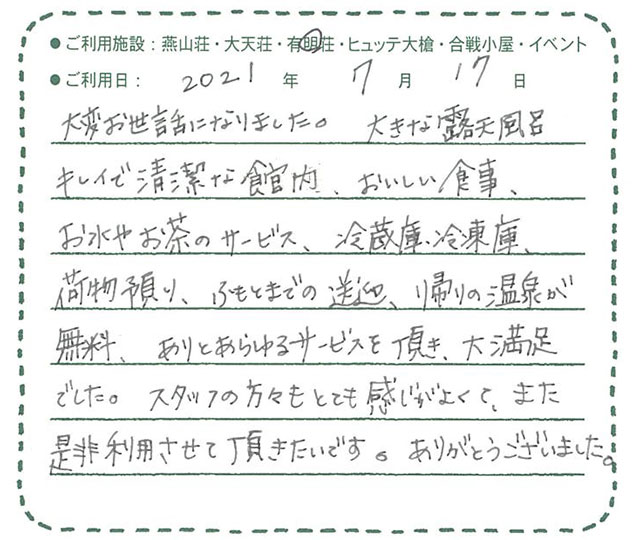 ●ご利用施設：燕山荘・大天荘・有明荘・ヒュッテ大槍・合戦小屋・イベント
●ご利用日： 2021 年 7 月 17 日
大変お世話になりました。 大きな露天風呂
キレイで清潔な館内、おいしい食事、
お水やお茶のサービス、冷蔵庫、冷凍庫、
荷物預り、ふもとまでの送迎、帰りの温泉が
無料、ありとあらゆるサービスを頂き、大満足
でした。スタッフの方々もとても感じがよくて、また
是非利用させて頂きたいです。ありがとうございました。